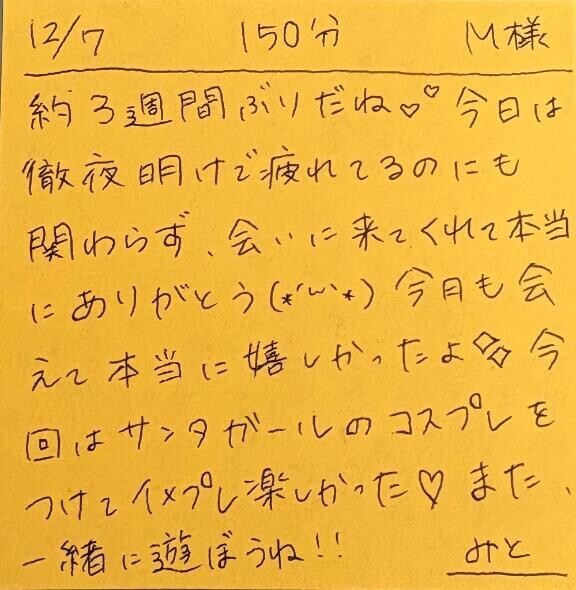 12/7 150分 M様
約3週間ぶりだね♡♡今日は
徹夜明けで疲れてるのにも
関わらず、会いに来てくれて本当
にありがとう(*´ω`*)今日も会
えて本当に嬉しかったよ◇◇今
回はサンタガールのコスプレを
つけてイメプレ楽しかった♡また、
一緒に遊ぼうね!! みと